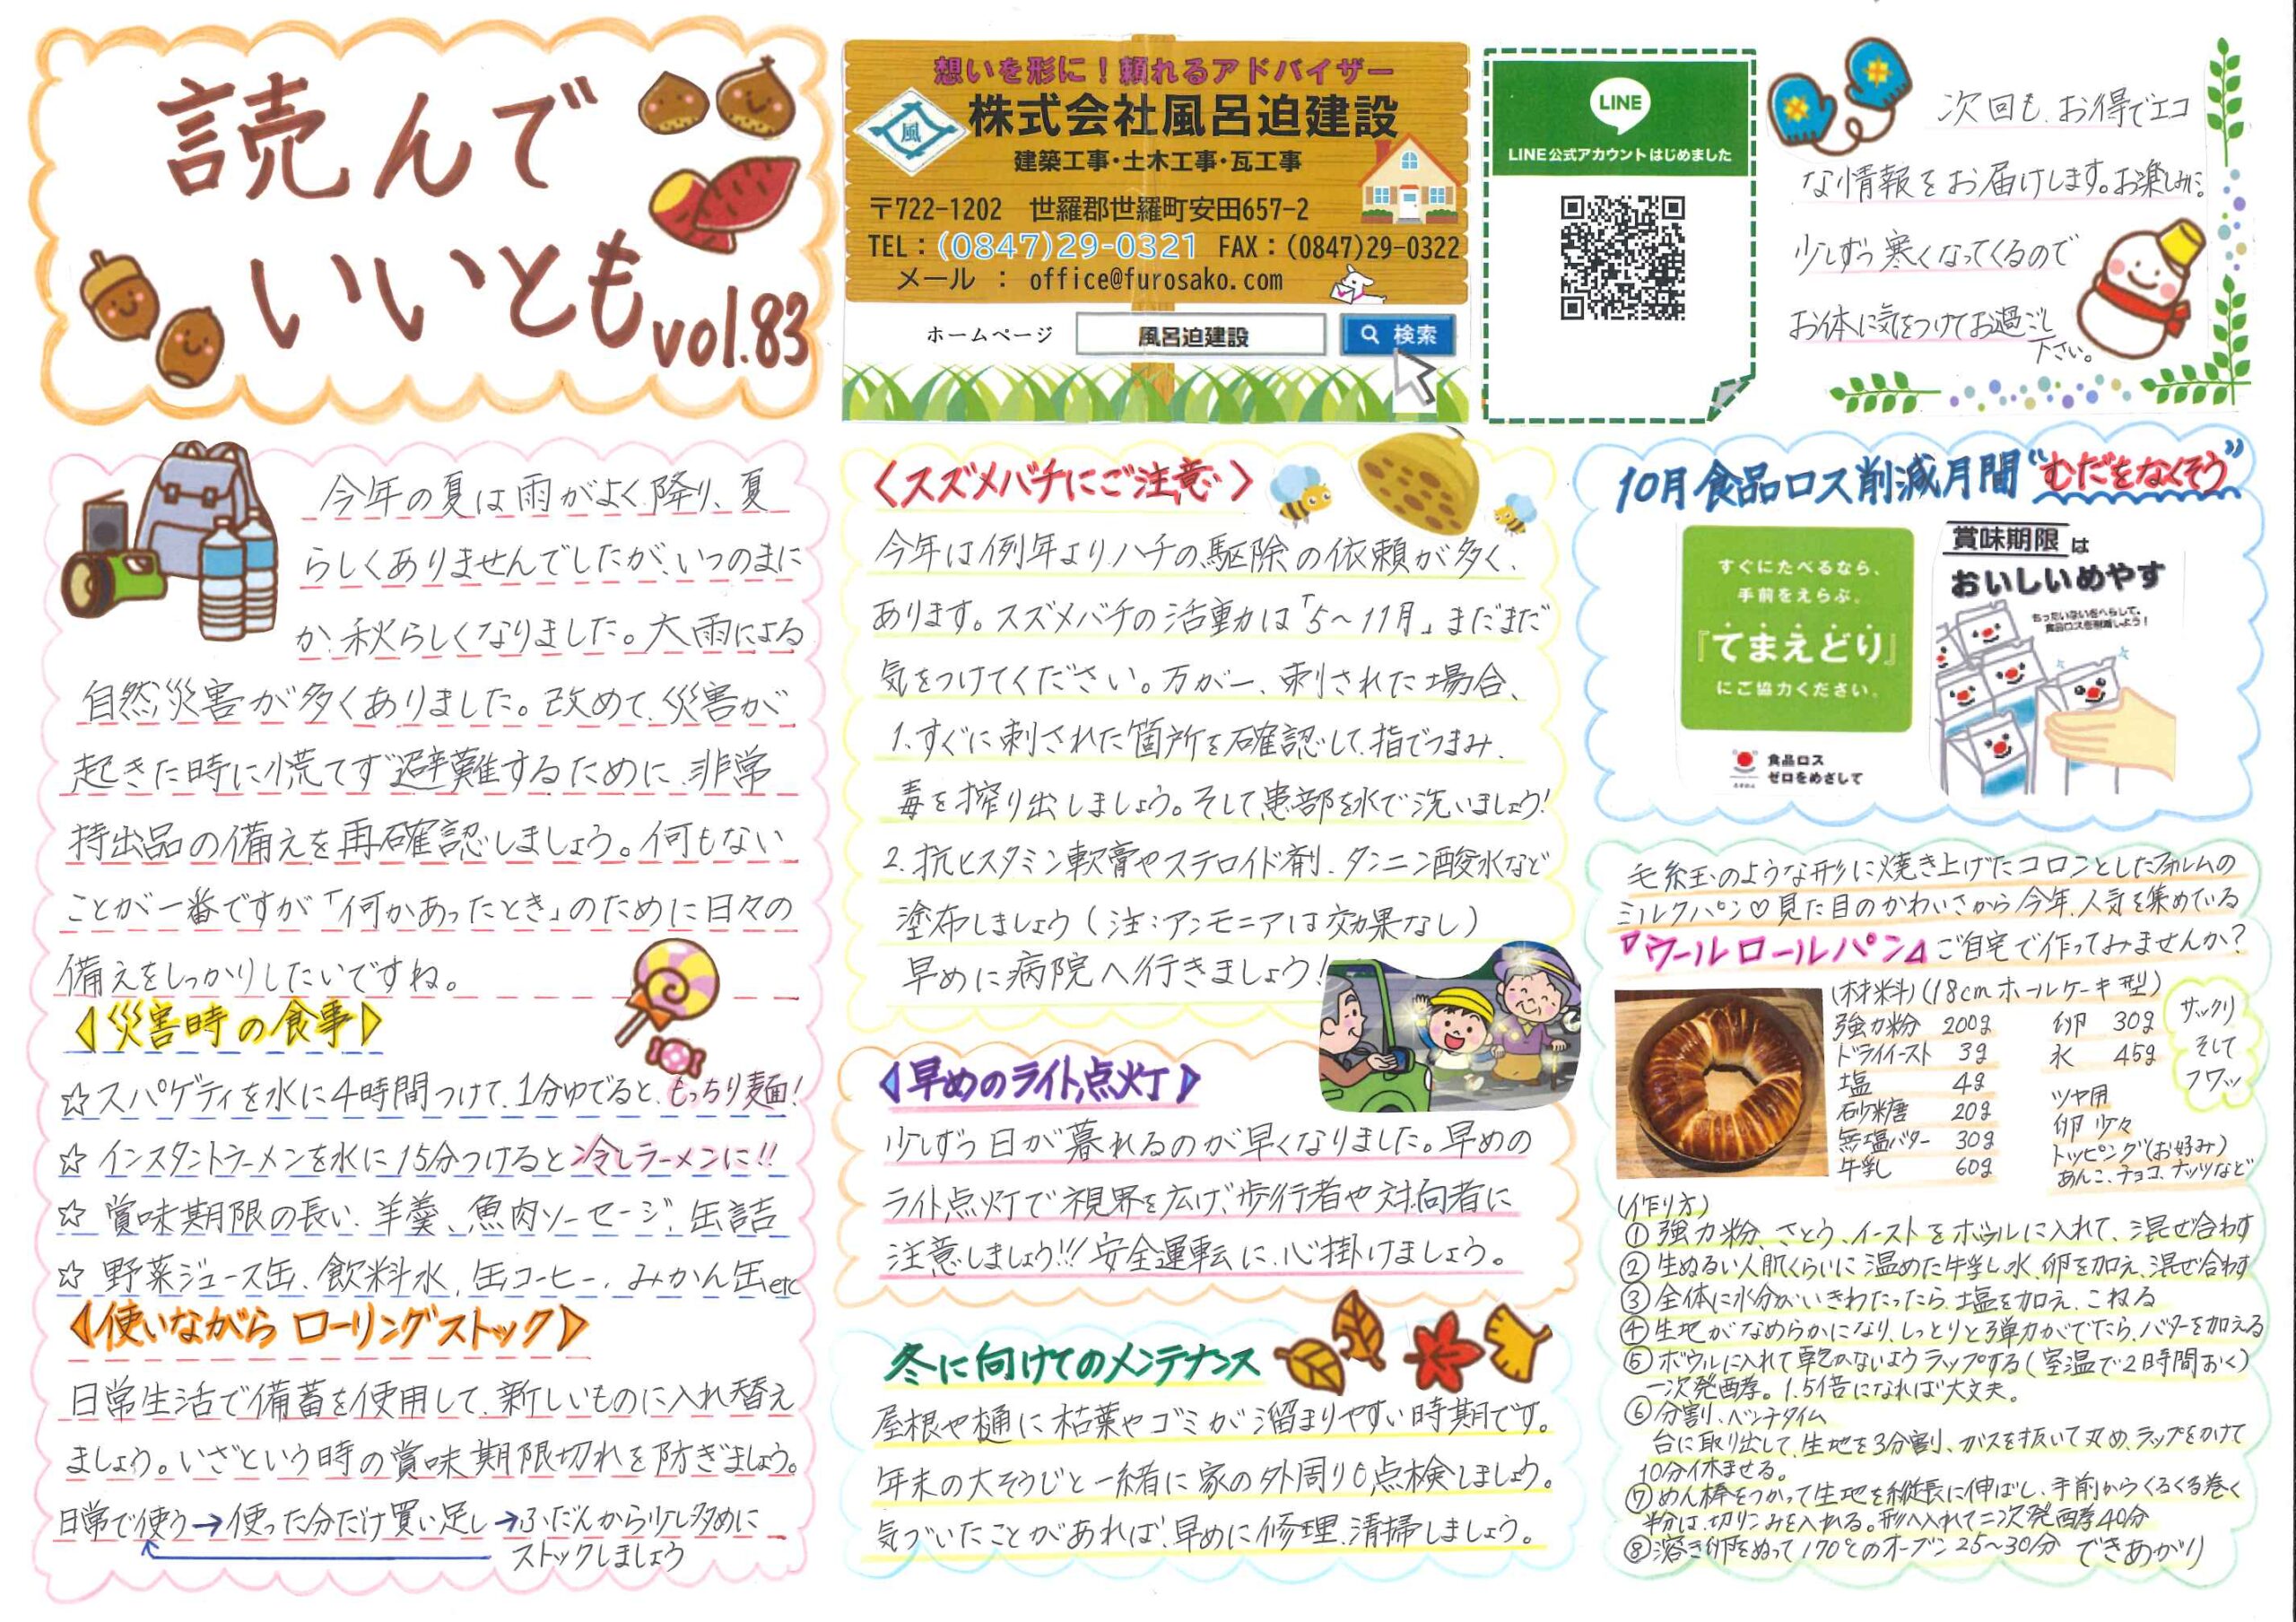 読んで
いいとも vol.83
想いを形に！頼れるアドバイザー
風
株式会社風呂迫建設
建築工事・土木工事・瓦工事
〒722-1202　世羅郡世羅町安田657-2
TEL：(0847)29-0321 FAX：(0847)29-0322
メール ： office@furosako.com
ホームページ 風呂迫建設 検索
LINE
LINE公式アカウントはじめました
次回も、お得でエコ
な情報をお届けします。お楽しみに
少しずつ寒くなってくるので
お体に気をつけてお過ごし
下さい。
今年の夏は雨がよく降り、夏
らしくありませんでしたが、いつのまに
か、秋らしくなりました。大雨による
自然災害が多くありました。改めて、災害が
起きた時に慌てず避難するために、非常
持出品の備えを再確認しましょう。何もない
ことが一番ですが「何かあったとき」のために日々の
備えをしっかりしたいですね。
災害時の食事
☆スパゲティを水に4時間つけて、1分ゆでると、もっちり麺！
☆ インスタントラーメンを水に15分つけると冷しラーメンに!!
☆ 賞味期限の長い、羊羹、魚肉ソーセージ、缶詰
☆ 野菜ジュース缶、飲料水、缶コーヒー、みかん缶etc
使いながら ローリングストック
日常生活で備蓄を使用して、新しいものに入れ替え
ましょう。いざという時の賞味期限切れを防ぎましょう。
日常で使う→使った分だけ買い足し→ふだんから少し多めに
ストックしましょう
〈スズメバチにご注意〉
今年は例年よりハチの駆除の依頼が多く、
あります。スズメバチの活動力は「5～11月」まだまだ
気をつけてください。万が一、刺された場合、
1、すぐに刺された箇所を確認して、指でつまみ、
毒を搾り出しましょう。そして患部を水で洗いましょう！
2、抗ヒスタミン軟膏やステロイド剤、タンニン酸水など
塗布しましょう（注：アンモニアは効果なし）
早めに病院へ行きましょう！
早めのライト点灯
少しずつ日が暮れるのが早くなりました。早めの
ライト点灯で視界を広げ、歩行者や対向者に
注意しましょう!!!安全運転に心掛けましょう。
冬に向けてのメンテナンス
屋根や樋に枯葉やゴミが溜まりやすい時期です。
年末の大そうじと一緒に家の外周りも点検しましょう。
気づいたことがあれば、早めに修理、清掃しましょう。
10月食品ロス削減月間“むだをなくそう”
すぐにたべるなら、
手前をえらぶ。
『てまえどり』
にご協力ください。
食品ロス
ゼロをめざして
賞味期限は
おいしいめやす
もったいないをへらして、
食品ロスを削減しよう！
毛糸玉のような形に焼き上げたコロンとしたフォルムの
ミルクパン♡見た目のかわいさから今年、人気を集めている
『ウールロールパン』ご自宅で作ってみませんか？
(材料)(18cmホールケーキ型)
強力粉 200g 卵 30g
ドライイースト 3g 水 45g
塩 4g
砂糖 20g
無塩バター 30g
牛乳 60g
ツヤ用
卵 少々
トッピング(お好み)
あんこ、チョコ、ナッツなど
サックリ
そして
フワッ
(作り方)
①強力粉、さとう、イーストをボウルに入れて、混ぜ合わす
②生ぬるい人肌くらいに温めた牛乳と水、卵を加え、混ぜ合わす
③全体に水分がいきわたったら、塩を加え、こねる
④生地がなめらかになり、しっとりと弾力がでてたら、バターを加える
⑤ボウルに入れて乾かないようラップする(室温で2時間おく)
一次発酵。1.5倍になれば大丈夫。
⑥分割、ベンチタイム
台に取り出して、生地を3分割、ガスを抜いて丸め、ラップをかけて
10分休ませる。
⑦めん棒をつかって生地を縦長に伸ばし、手前からくるくる巻く
半分は、切りこみを入れる。形へ入れて二次発酵40分
⑧溶き卵をぬって170℃のオーブン25～30分 できあがり